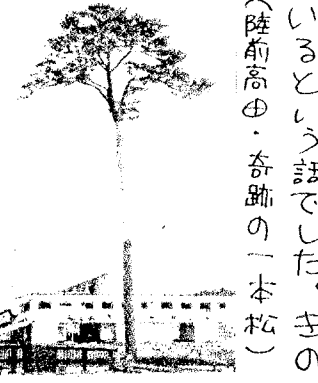 いるという話でした。きの
（陸前高田・奇跡の一本松）